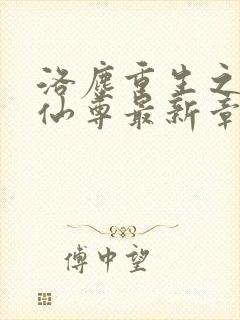 洛尘重生之
仙尊最新章
傅中望